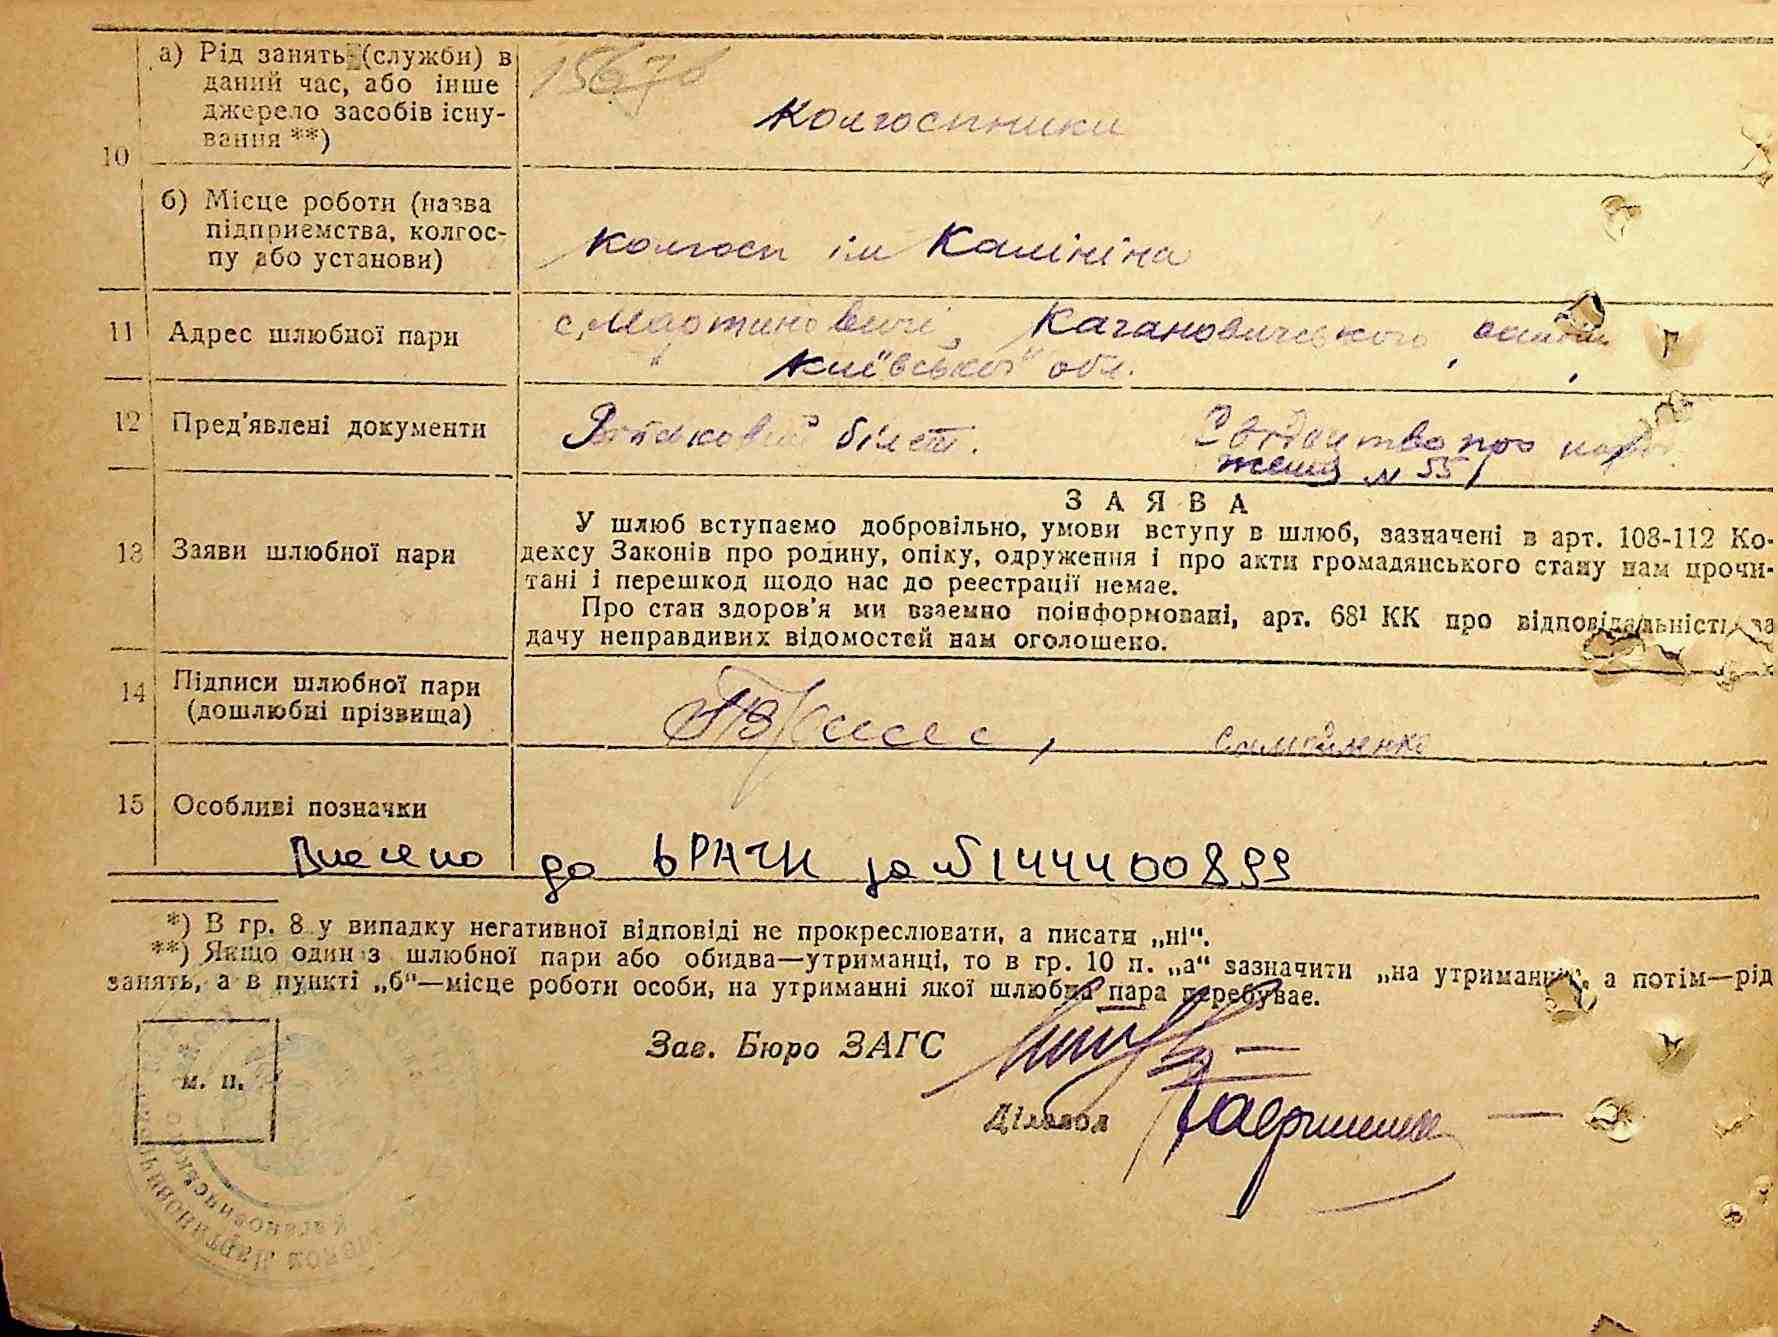 10
а) Рід занять (служби) в
даний час, або інше
джерело засобів існу-
вання **)
Колгоспники
б) Місце роботи (назва
підприємства, колгос-
пу або установи)
колгосп ім Калініна
11 Адрес шлюбної пари
с. Мартиновичі Кагановичського
Київської обл.
12 Пред'явлені документи
Військовий білет.
Свідоцтво про
ження N 55
13 Заяви шлюбної пари
ЗАЯВА
У шлюб вступаємо добровільно, умови вступу в шлюб, зазначені в арт. 108-112 Ко-
дексу Законів про родину, опіку, одруження і про акти громадянського стану нам прочи-
тані і перешкод щодо нас до реєстрації немає.
Про стан здоров'я ми взаємно поінформовані, арт. 68¹ КК про відповідальність за
дачу неправдивих відомостей нам оголошено.
14 Підписи шлюбної пари
(дошлюбні прізвища)
15 Особливі позначки
Внесено до ДРАЦС за №1444400899
*) В гр. 8 у випадку негативної відповіді не прокреслювати, а писати „ні“.
**) Якщо один з шлюбної пари або обидва—утриманці, то в гр. 10 п. „а“ зазначити „на утриманні“, а потім—рід
занять, а в пункті „б“—місце роботи особи, на утриманні якої шлюбна пара перебуває.
Зав. Бюро ЗАГС
м. п.
Діловод